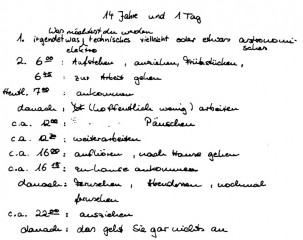 14 Jahre und 1 Tag
Was möchtest du werden
1. irgendetwas, technisches vielleicht oder etwas astronomi-
elektro sches
2. 6⁰⁰ : Aufstehen, anziehen, Frühstücken,
6⁴⁵ : zur Arbeit gehen
7⁰⁰ : ankommen
danach : (hoffentlich wenig) arbeiten
c.a. 12⁰⁰ : Päuschen
c.a. 12³⁰ : weiterarbeiten
c.a. 16⁰⁰ : aufhören, nach Hause gehen
c.a. 16¹⁵ : zuhause ankommen
danach : fernsehen, Abendessen, nochmal
fernsehen
c.a. 22⁰⁰ : ausziehen
danach : das geht Sie gar nichts an